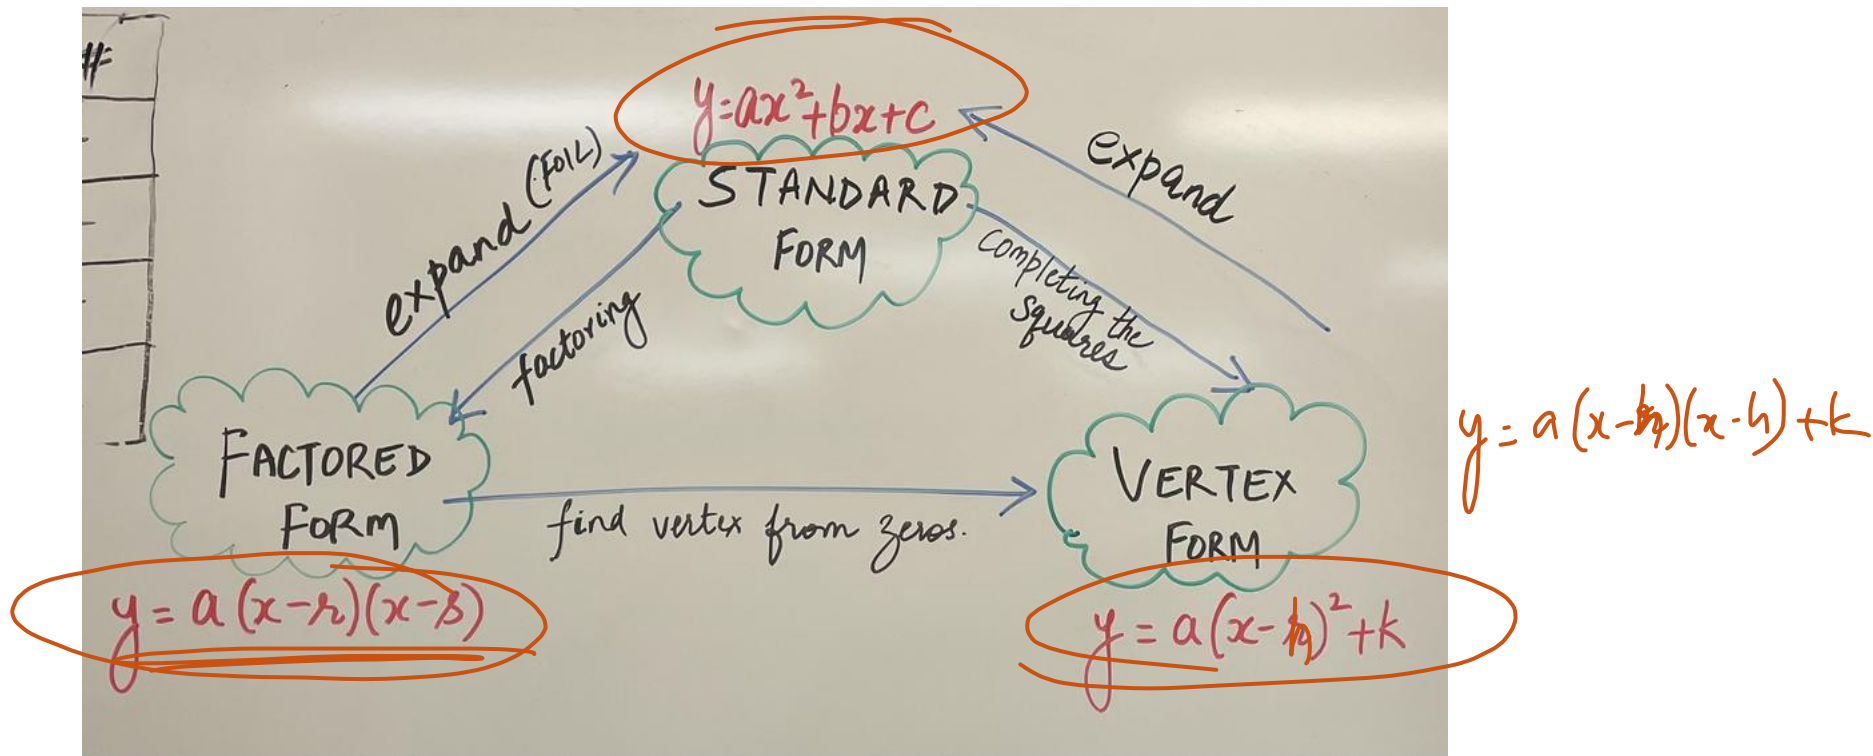 #
y=ax²+bx+c
STANDARD
FORM
expand (FOIL)
factoring
expand
completing the
squares
FACTORED
FORM
find vertex from zeros.
VERTEX
FORM
y = a(x-r)(x-s)
y = a(x-h)²+k
y = a(x-h)(x-h)+k